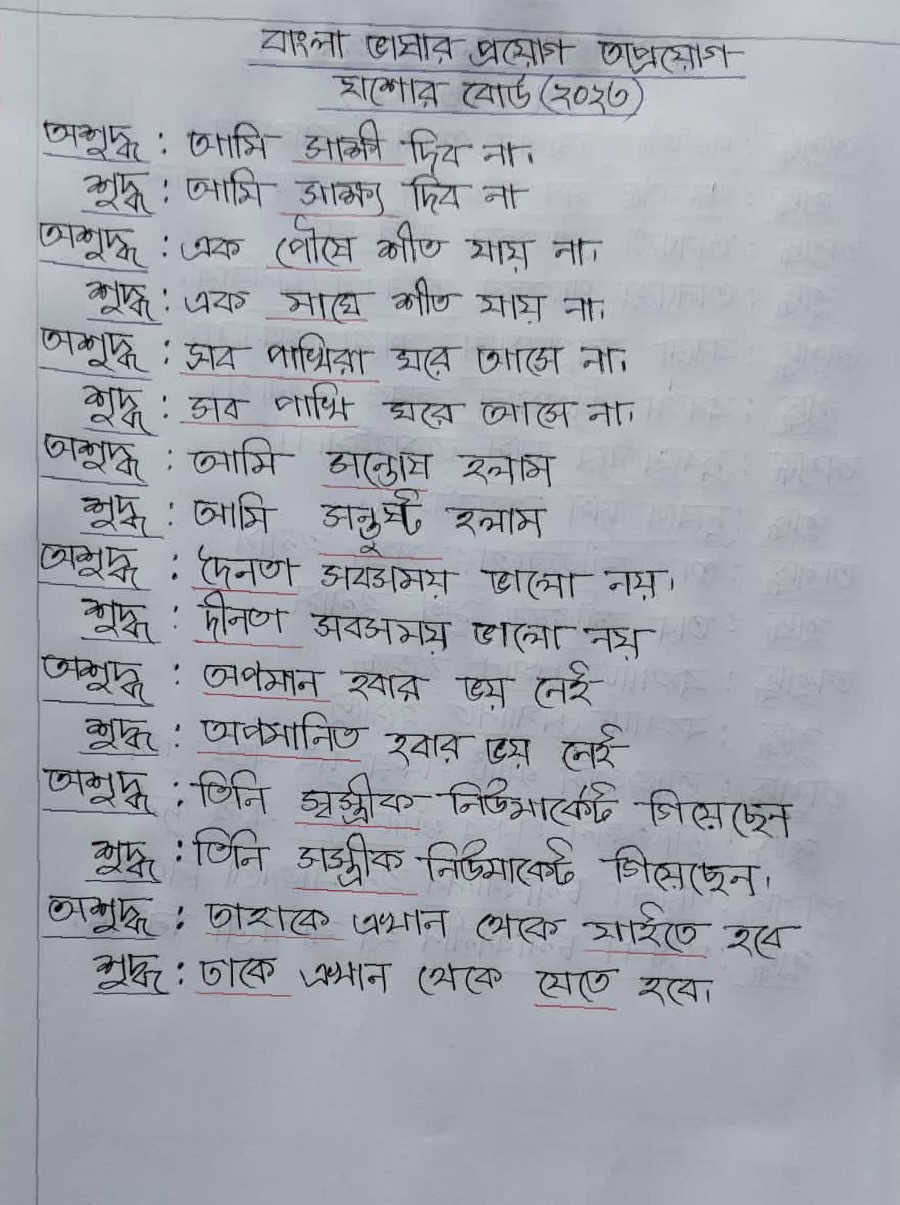 বাংলা ভাষার প্রয়োগ অপ্রয়োগ
যশোর বোর্ড (২০২৩)
অশুদ্ধ : আমি সাক্ষী দিব না।
শুদ্ধ : আমি সাক্ষ্য দিব না
অশুদ্ধ : এক পৌষে শীত যায় না।
শুদ্ধ : এক মাঘে শীত যায় না।
অশুদ্ধ : সব পাখিরা ঘরে আসে না।
শুদ্ধ : সব পাখি ঘরে আসে না।
অশুদ্ধ : আমি সন্তোষ হলাম
শুদ্ধ : আমি সন্তুষ্ট হলাম
অশুদ্ধ : দৈনতা সবসময় ভালো নয়।
শুদ্ধ : দীনতা সবসময় ভালো নয়
অশুদ্ধ : অপমান হবার ভয় নেই
শুদ্ধ : অপমানিত হবার ভয় নেই
অশুদ্ধ : তিনি স্বস্ত্রীক নিউমার্কেট গিয়েছেন
শুদ্ধ : তিনি সস্ত্রীক নিউমার্কেট গিয়েছেন।
অশুদ্ধ : তাহাকে এখান থেকে যাইতে হবে
শুদ্ধ : তাকে এখান থেকে যেতে হবে।